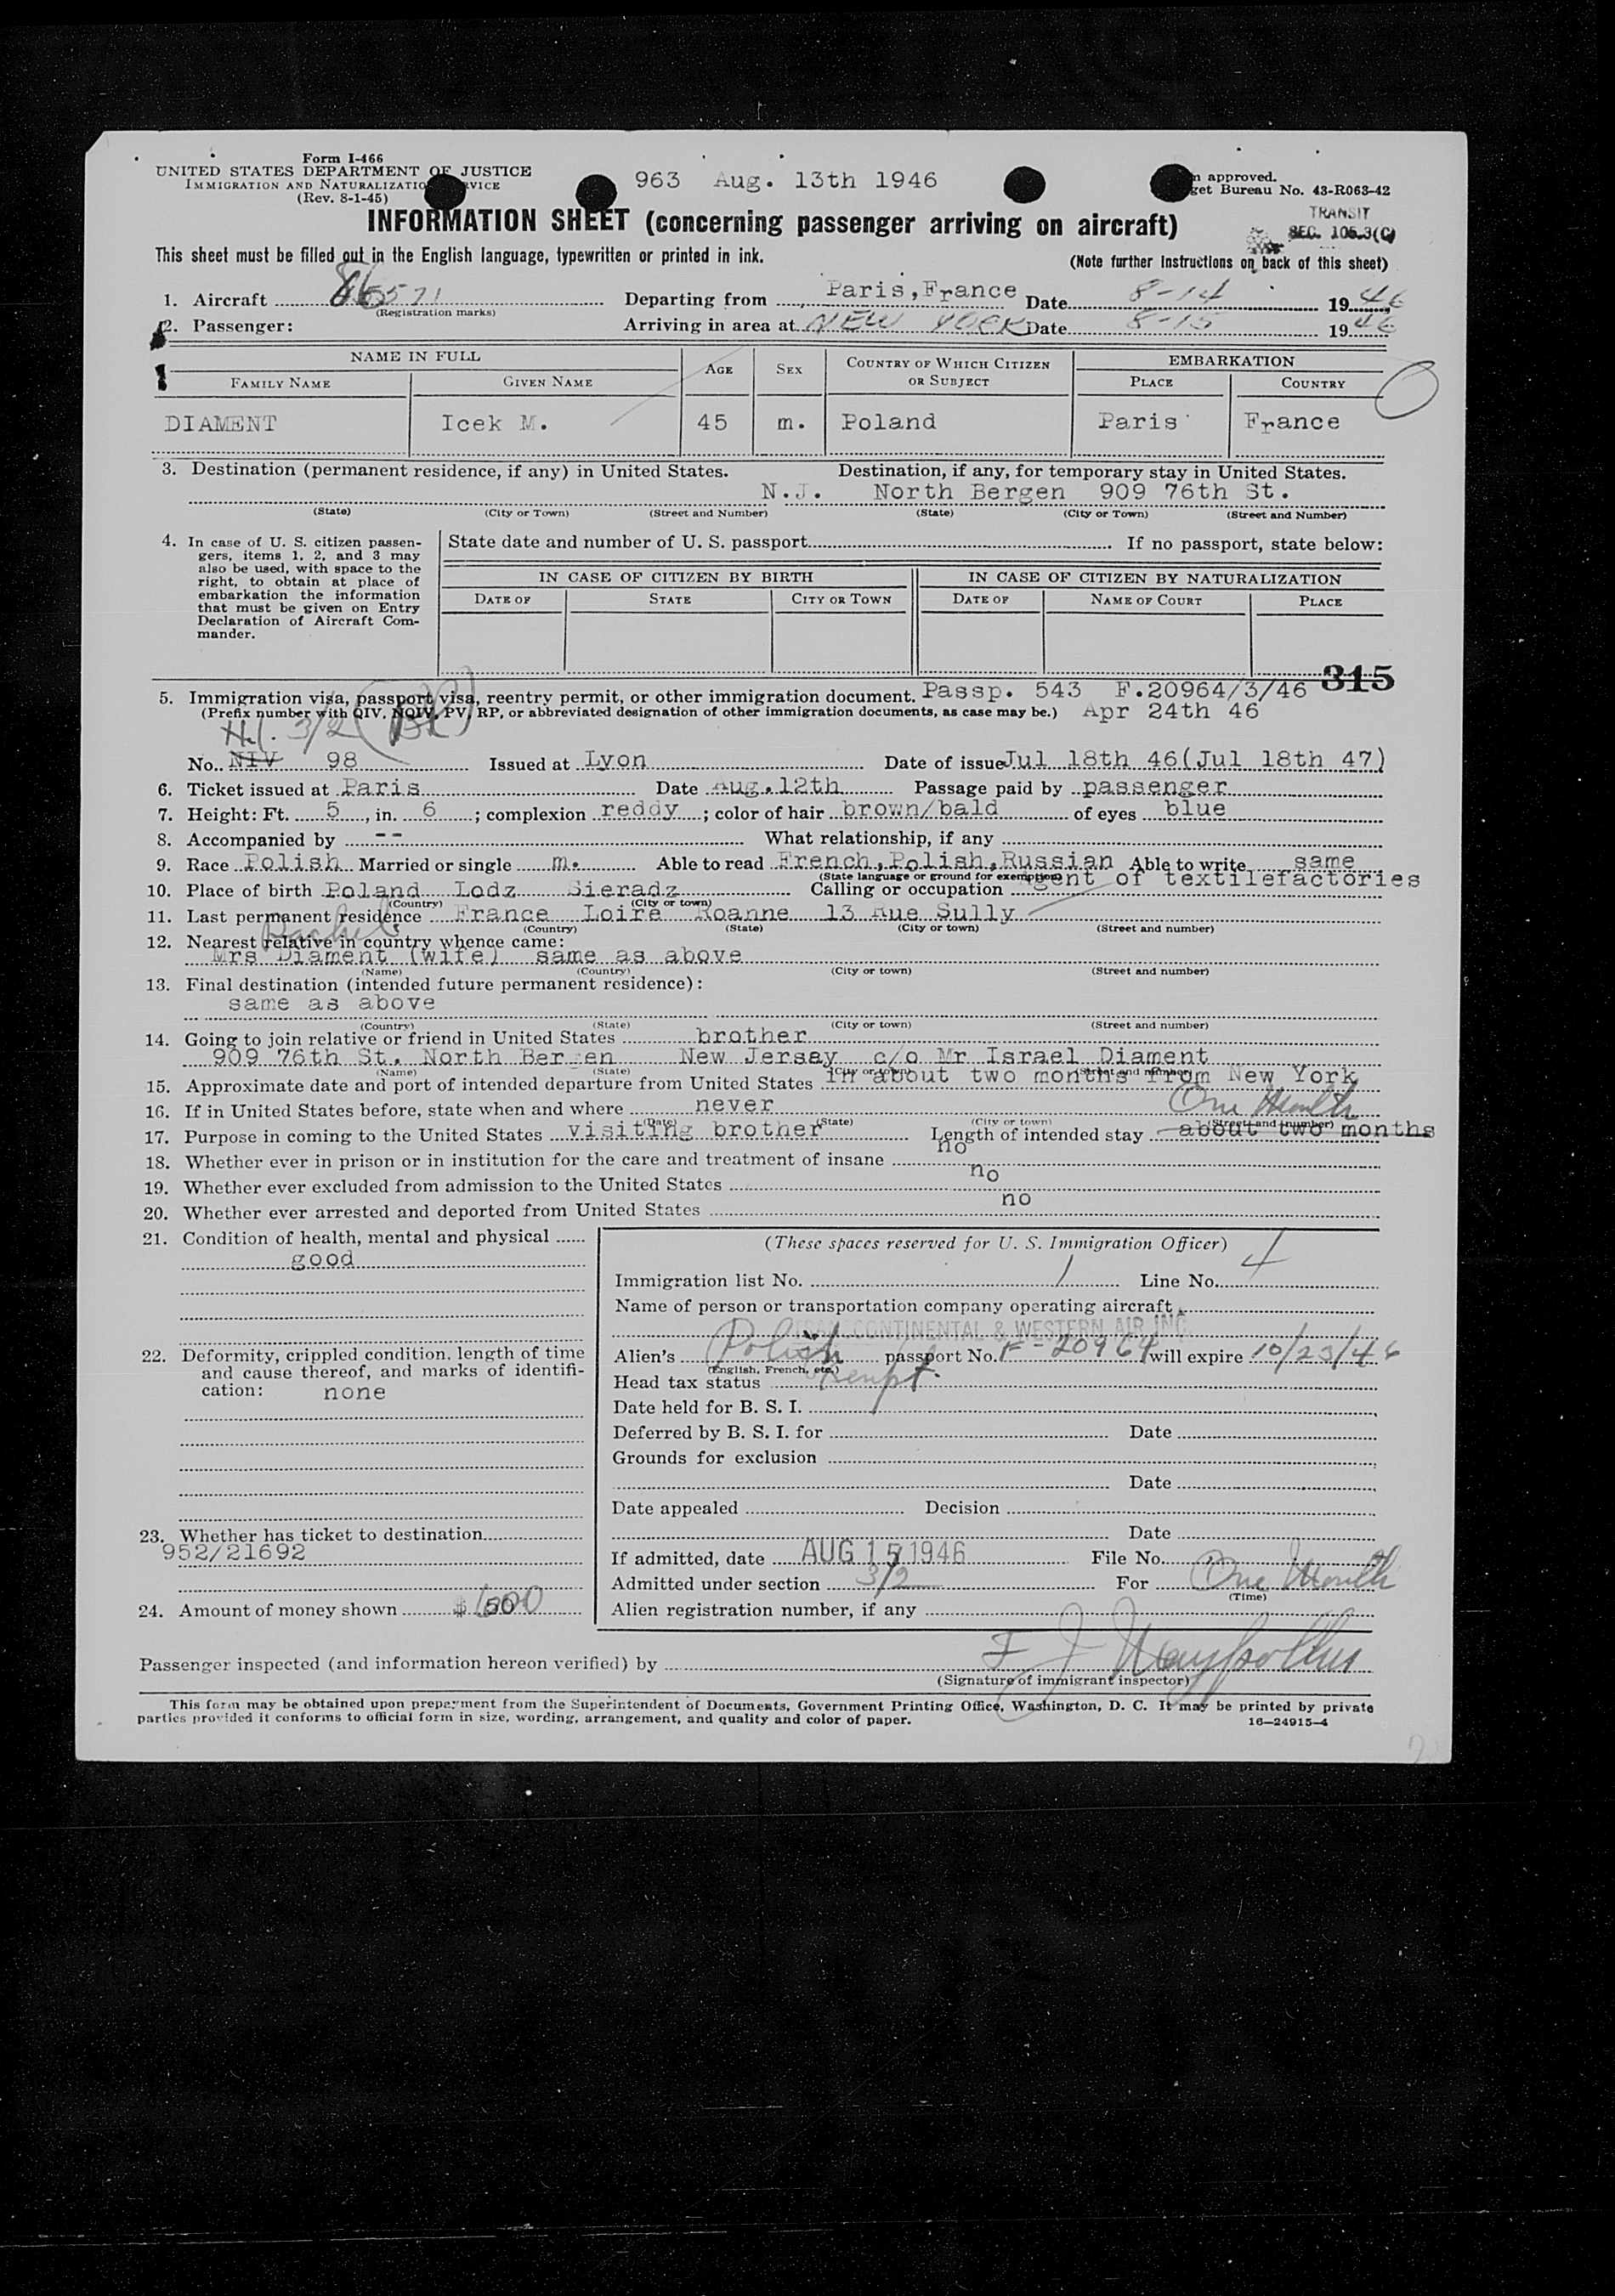 Form I-466
UNITED STATES DEPARTMENT OF JUSTICE
IMMIGRATION AND NATURALIZATIO RVICE
(Rev. 8-1-45)
963 Aug. 13th 1946
approved.
get Bureau No. 43-R063-42
TRANSIT
SEC. 105.3(C)
INFORMATION SHEET (concerning passenger arriving on aircraft)
This sheet must be filled out in the English language, typewritten or printed in ink.
(Note further instructions on back of this sheet)
1. Aircraft 86571 Departing from Paris, France Date 8-14 1946
(Registration marks)
2. Passenger: Arriving in area at NEW YORK Date 8-15 1946
NAME IN FULL AGE SEX COUNTRY OF WHICH CITIZEN OR SUBJECT EMBARKATION
FAMILY NAME GIVEN NAME PLACE COUNTRY
DIAMENT Icek M. 45 m. Poland Paris France
3. Destination (permanent residence, if any) in United States. Destination, if any, for temporary stay in United States.
N.J. North Bergen 909 76th St.
(State) (City or Town) (Street and Number) (State) (City or Town) (Street and Number)
4. In case of U. S. citizen passen-
gers, items 1, 2, and 3 may
also be used, with space to the
right, to obtain at place of
embarkation the information
that must be given on Entry
Declaration of Aircraft Com-
mander.
State date and number of U. S. passport If no passport, state below:
IN CASE OF CITIZEN BY BIRTH IN CASE OF CITIZEN BY NATURALIZATION
DATE OF STATE CITY OR TOWN DATE OF NAME OF COURT PLACE
315
5. Immigration visa, passport visa, reentry permit, or other immigration document. Passp. 543 F.20964/3/46
(Prefix number with QIV, NQIV, PV, RP, or abbreviated designation of other immigration documents, as case may be.) Apr 24th 46
3/2
No. NIV 98 Issued at Lyon Date of issue Jul 18th 46(Jul 18th 47)
6. Ticket issued at Paris Date Aug.12th Passage paid by passenger
7. Height: Ft. 5, in. 6; complexion reddy; color of hair brown/bald of eyes blue
8. Accompanied by -- What relationship, if any
9. Race Polish Married or single m. Able to read French,Polish,Russian Able to write same
(State language or ground for exemption)
10. Place of birth Poland Lodz Sieradz Calling or occupation Agent of textilefactories
(Country) (City or town)
11. Last permanent residence France Loire Roanne 13 Rue Sully
(Country) (State) (City or town) (Street and number)
12. Nearest relative in country whence came:
Rachel
Mrs Diament (wife) same as above
(Name) (Country) (City or town) (Street and number)
13. Final destination (intended future permanent residence):
same as above
(Country) (State) (City or town) (Street and number)
14. Going to join relative or friend in United States brother
909 76th St. North Bergen New Jersey c/o Mr Israel Diament
(Name) (State) (City or town) (Street and number)
15. Approximate date and port of intended departure from United States in about two months from New York
16. If in United States before, state when and where never
One Month
(Date) (State) (City or town) (Street and number)
17. Purpose in coming to the United States visiting brother Length of intended stay about two months
18. Whether ever in prison or in institution for the care and treatment of insane no
19. Whether ever excluded from admission to the United States no
20. Whether ever arrested and deported from United States no
21. Condition of health, mental and physical
good
(These spaces reserved for U. S. Immigration Officer)
Immigration list No. 1 Line No. 4
Name of person or transportation company operating aircraft
TRANSCONTINENTAL & WESTERN AIR INC
22. Deformity, crippled condition, length of time
and cause thereof, and marks of identifi-
cation: none
Alien's Polish passport No. F-20964 will expire 10/23/46
(English, French, etc.)
Head tax status
Date held for B. S. I.
Deferred by B. S. I. for Date
Grounds for exclusion
Date
Date appealed Decision
Date
23. Whether has ticket to destination
952/21692
If admitted, date AUG 15 1946 File No.
Admitted under section 3/2 For One Month
(Time)
24. Amount of money shown $
Alien registration number, if any
Passenger inspected (and information hereon verified) by F J
(Signature of immigrant inspector)
This form may be obtained upon prepayment from the Superintendent of Documents, Government Printing Office, Washington, D. C. It may be printed by private
parties provided it conforms to official form in size, wording, arrangement, and quality and color of paper.
16—24915-4